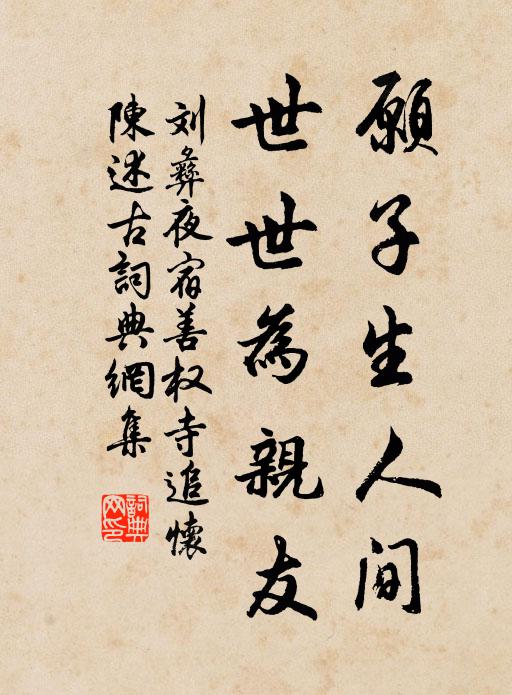 願子生人间
世世為親友
刘彝夜宿善权寺追懷
陳述古詞典網集
詞典网印